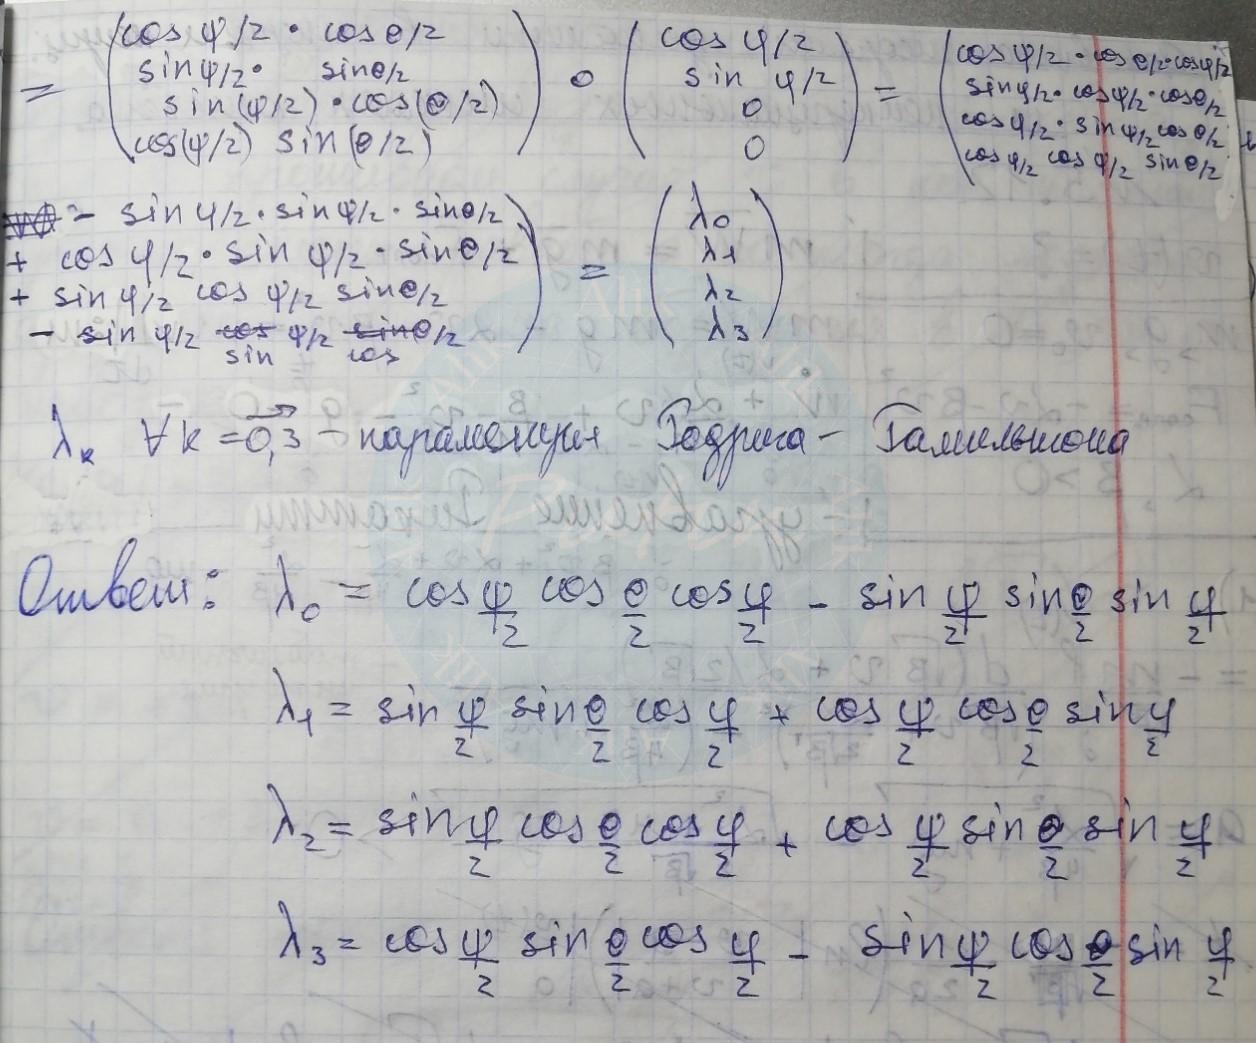 = (cos ψ/2 · cos θ/2
sin ψ/2 · sin θ/2
sin(ψ/2) · cos(θ/2)
cos(ψ/2) sin(θ/2)) ∘ (cos φ/2
sin φ/2
0
0) = (cos ψ/2 · cos θ/2 · cos φ/2
sin φ/2 · cos ψ/2 · cos θ/2
cos φ/2 · sin ψ/2 cos θ/2
cos φ/2 cos ψ/2 sin θ/2
- sin φ/2 · sin ψ/2 · sin θ/2
+ cos φ/2 · sin ψ/2 · sin θ/2
+ sin φ/2 cos ψ/2 sin θ/2
- sin φ/2 sin ψ/2 cos θ/2) = (λ0
λ1
λ2
λ3)
λk ∀k = 0,3 - параметры Родрига - Гамильтона
Ответ: λ0 = cos ψ/2 cos θ/2 cos φ/2 - sin ψ/2 sin θ/2 sin φ/2
λ1 = sin ψ/2 sin θ/2 cos φ/2 + cos ψ/2 cos θ/2 sin φ/2
λ2 = sin ψ/2 cos θ/2 cos φ/2 + cos ψ/2 sin θ/2 sin φ/2
λ3 = cos ψ/2 sin θ/2 cos φ/2 - sin ψ/2 cos θ/2 sin φ/2